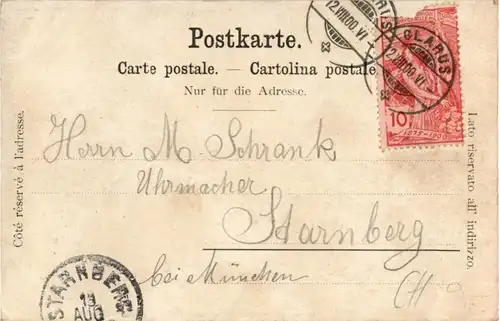 Postkarte.
Carte postale. — Cartolina postale
Nur für die Adresse.
GLARUS
12.VIII.00.VI
GLARUS
12.VIII.00.VI
10
1875-1900
Côté réservé à l'adresse.
Lato riservato all' indirizzo.
Herrn M Schrank
Uhrmacher
Starnberg
bei München
STARNBERG
13
AUG